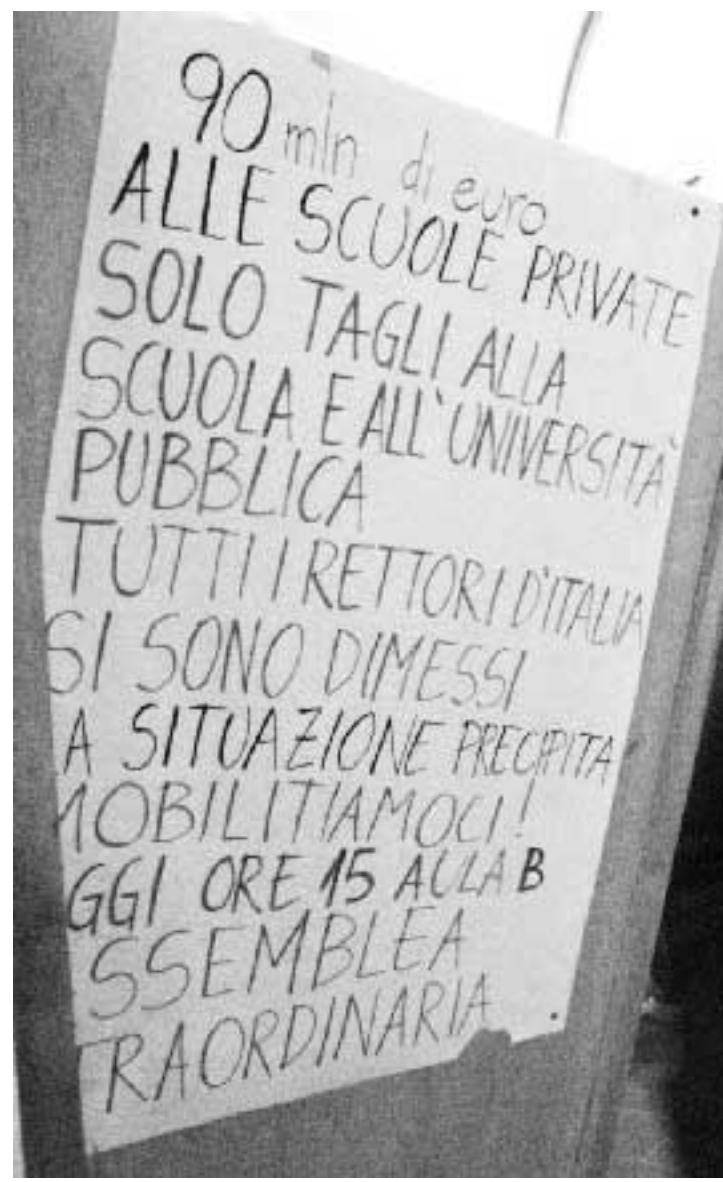 90 mln di euro
ALLE SCUOLE PRIVATE
SOLO TAGLI ALLA
SCUOLA E ALL'UNIVERSITÀ
PUBBLICA
TUTTI I RETTORI D'ITALIA
SI SONO DIMESSI
A SITUAZIONE PRECIPITA
MOBILITIAMOCI!
GGI ORE 15 AULA B
SSEMBLEA
TRAORDINARIA